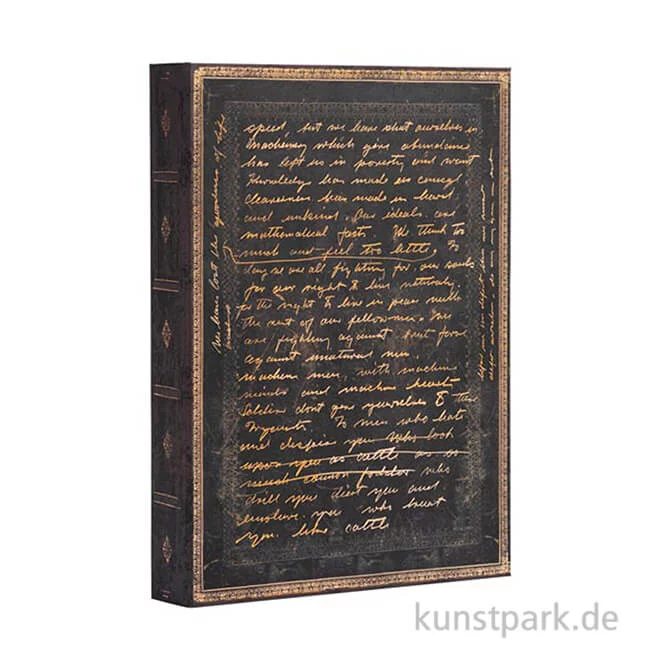 speed, but we have shut ourselves in
Machinery which gives abundance
has left us in poverty and want
Knowledge has made us
cleverness has made us hard
and unkind. Our ideals are
mathematical facts. We think too
much and feel too little. To
day we are all fighting for our souls
for our right to live naturally.
for the right to live in peace with
the rest of our fellow-men. We
are fighting against brut force
against unatural men.
machine men, with machine
minds and machine hearts
Soldiers dont give yourselves to these
To men who hate
and despise you who look
upon you as cattle as
cannon fodder who
drill you diet you and
enslave you who treat
you like cattle
We have lost the of life
kunstpark.de